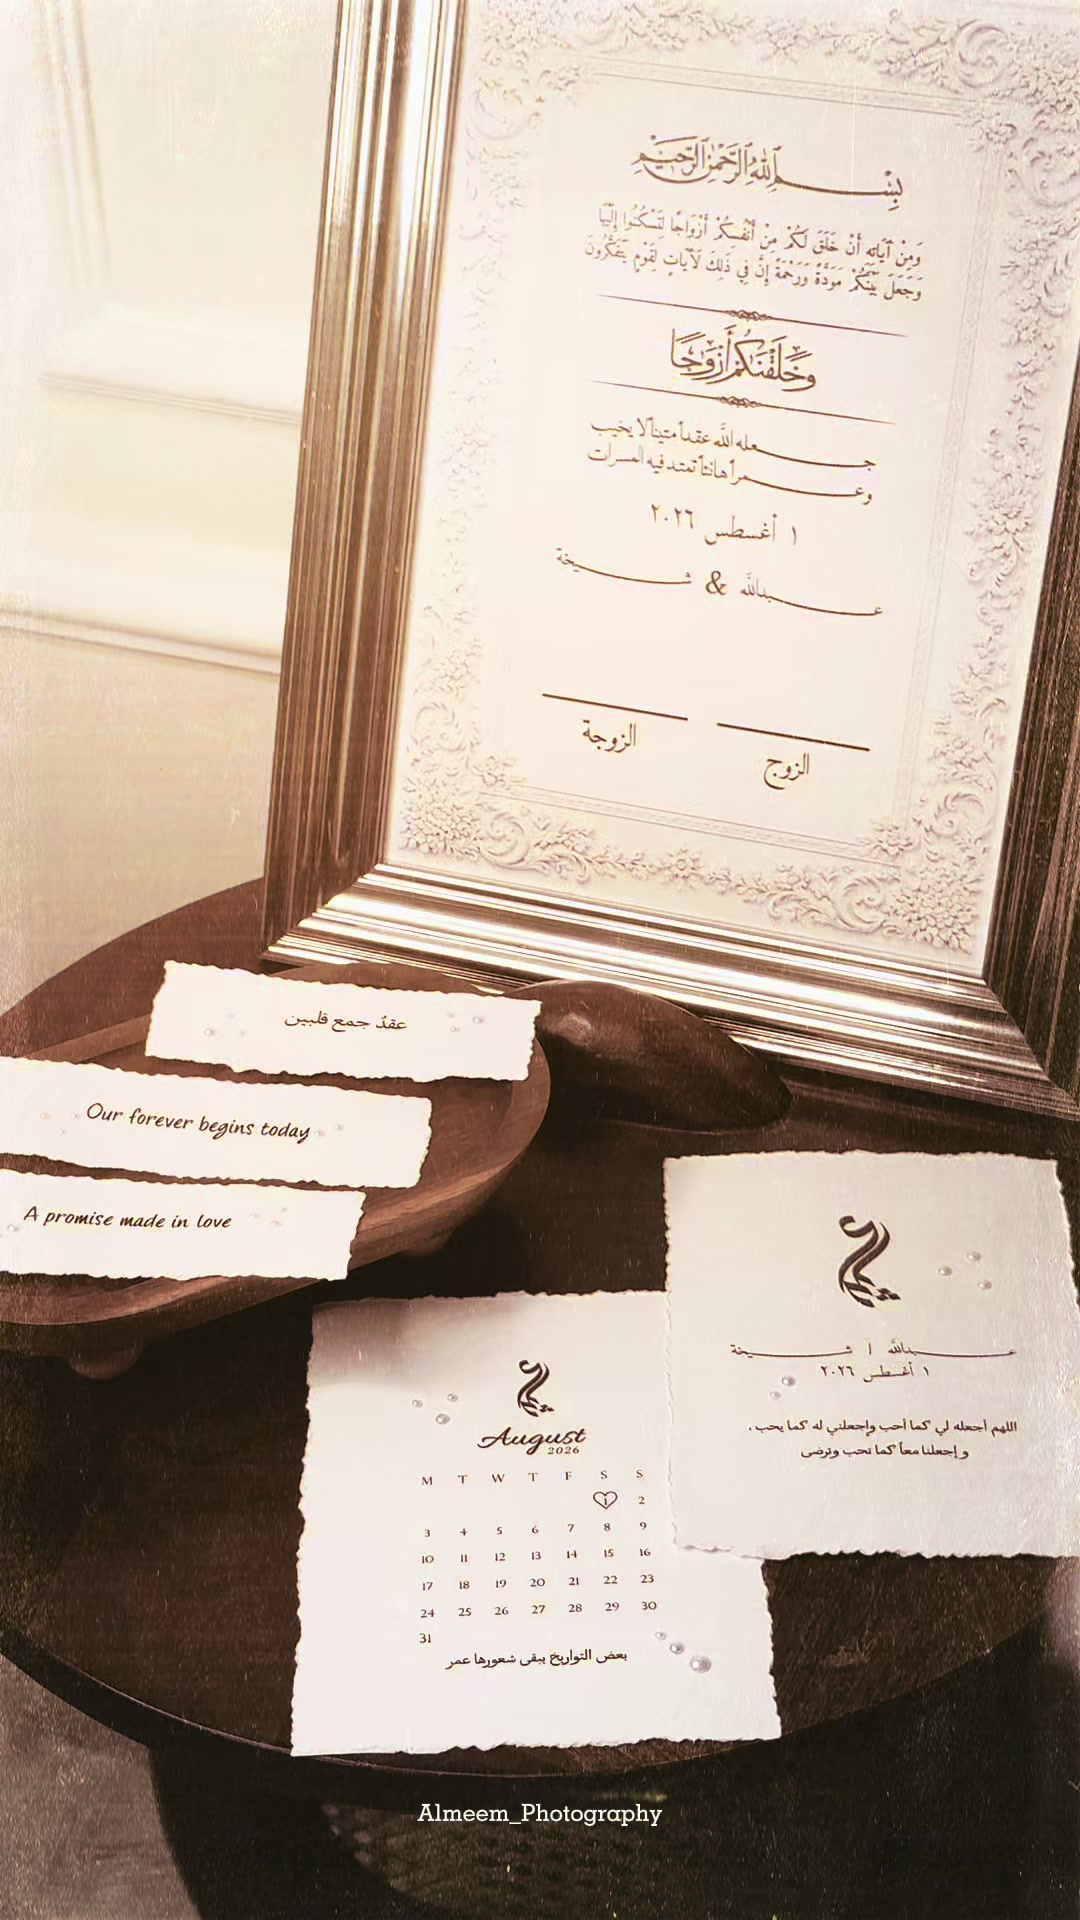 بِسْمِ اللهِ الرَّحْمٰنِ الرَّحِيْمِ
وَمِنْ آيَاتِهِ أَنْ خَلَقَ لَكُمْ مِنْ أَنْفُسِكُمْ أَزْوَاجًا لِتَسْكُنُوا إِلَيْهَا
وَجَعَلَ بَيْنَكُمْ مَوَدَّةً وَرَحْمَةً إِنَّ فِي ذَلِكَ لَآيَاتٍ لِقَوْمٍ يَتَفَكَّرُونَ
وَخَلَقْنَكُمْ أَزْوَجًا
جـــعله الله عقداً متيناً لا يخيب
وعـــمراً هانئاً تمتد فيه المسرات
١ أغسطس ٢٠٢٦
عـــبدالله & شـــيخة
الزوج
الزوجة
عقدٌ جمع قلبين
Our forever begins today
A promise made in love
عـــبدالله | شـــيخة
١ أغسطس ٢٠٢٦
اللهم أجعله لي كما أحب وإجعلني له كما يحب ،
و إجعلنا معاً كما تحب وترضى
August
2026
M T W T F S S
1 2
3 4 5 6 7 8 9
10 11 12 13 14 15 16
17 18 19 20 21 22 23
24 25 26 27 28 29 30
31
بعض التواريخ يبقى شعورها عمر
Almeem_Photography